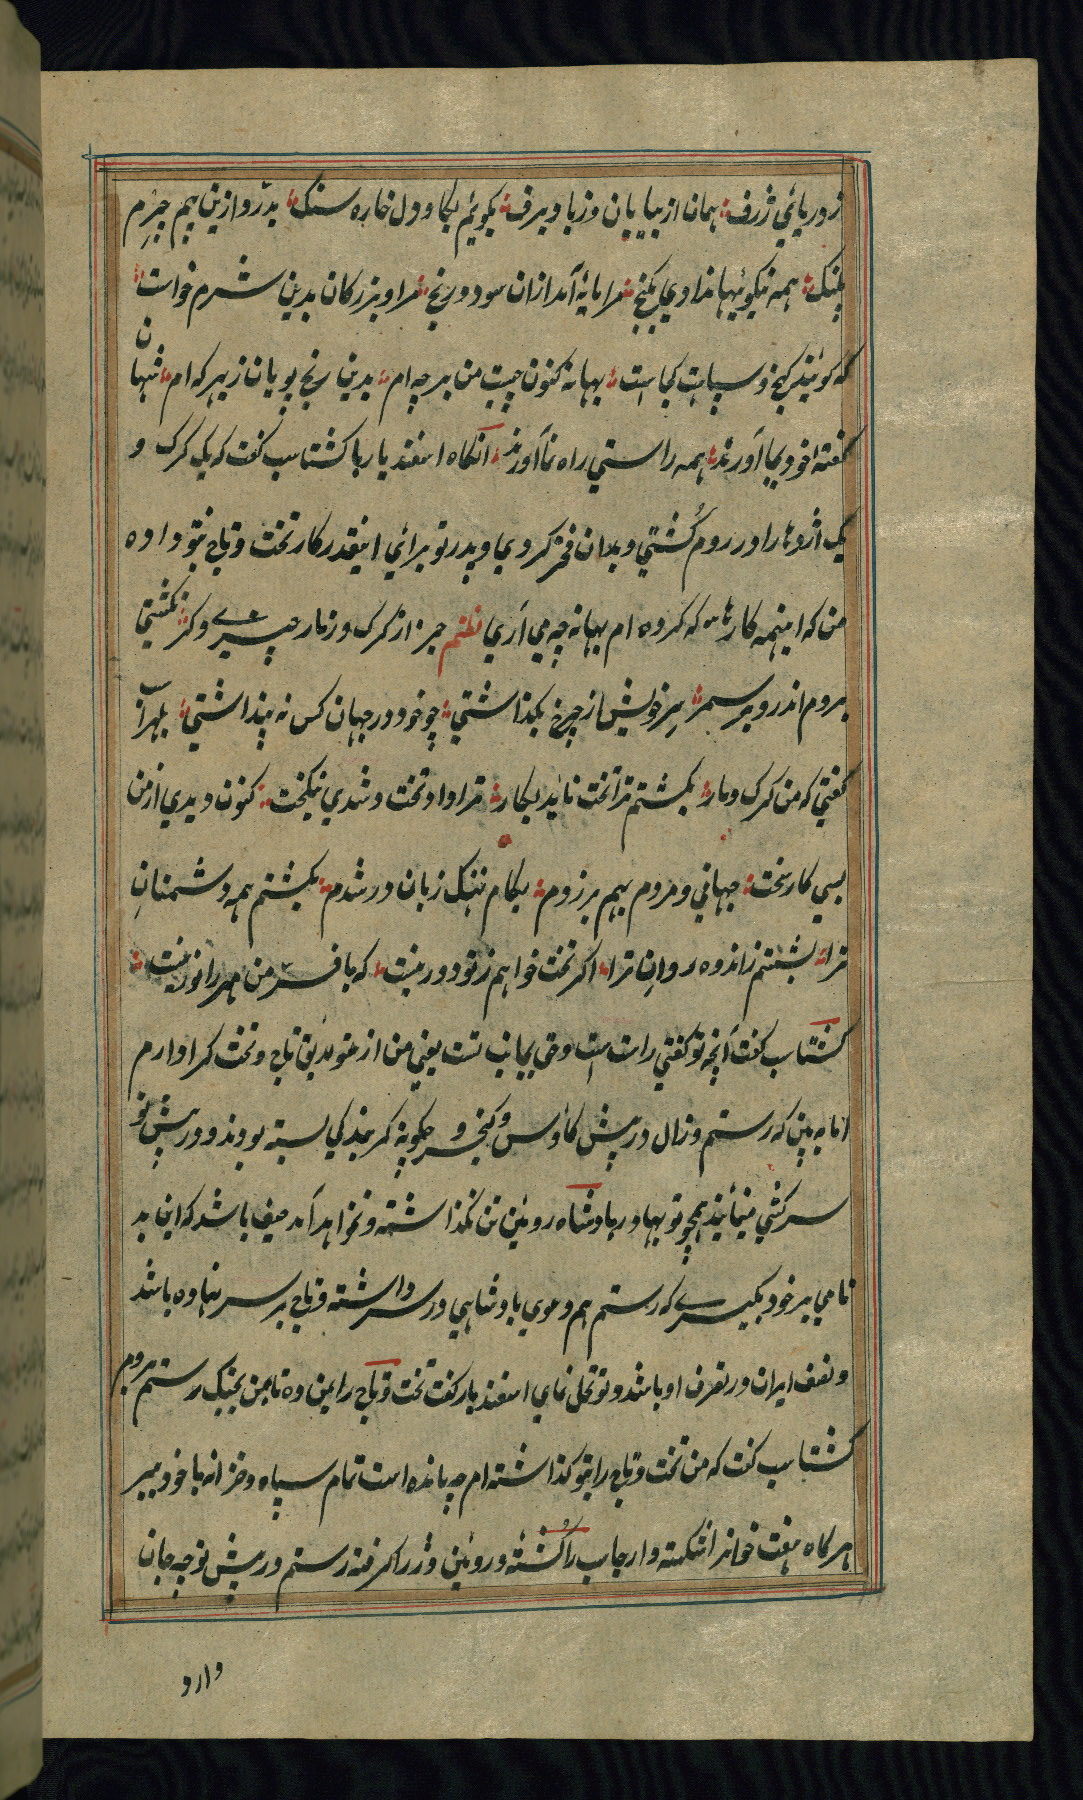 ز دریای ژرف همان از بیابان و ز باد و برف بکویم بکاود دل خاره سنک بدرد ازین بیم چرم
پلنک همه نیکوئیها نداوی بکنج مرا مایه آمد ازان سود و رنج مرا و بزرکان بدین شرم خواست
که کویند کنج و سپاهت کجاست بهانه کنون چیست من بر چه ام بدین رنج پویان ز بهر که ام شهان
کفته خود بجا آورند همه راستی راه نما آورند آنکاه اسفندیار با کشتاسب کفت که یک کرک و
یک اژدها را در روم کشتی و بدان فخر کردی و پدر تو برای اینقدر کار تخت و تاج بتو داده
من که اینهمه کارها که کرده ام بهانه چه می آری نظم جز از کرک و ز مار چیزی دکر نکشتی
بروم اندر و بر سمر سر خویش از چرخ بکذاشتی چو خود در جهان کس نه پنداشتی بلهراسب
کفتی که من کرک و مار بکشتم ترا تخت ناید بکار ترا داد تخت و شدی نیکبخت کنون دیدی از من
بسی کار سخت جهانی و مردم بهم برزدم بکام نهنک زبان در شدم بکشتم همه دشمنان
ترا بشستم ز اندوه روان ترا اکر تخت خواهم ز تو دور نیست که با فر من مهر را نور نیست
کشتاسب کفت آنچه تو کفتی راست است و حق بجانب تست یعنی من از عنو بدین تاج و تخت کرا دارم
اما به بین که رستم و زال در پیش کاوس و کیخسرو چکونه کمر بندکی بسته بودند و در پیش تو
سرکشی مینمایند همچو تو بهادر پادشاه روئین تن نکذاشته و نخواهد آمد حیف باشد که این بد
نامی بر خود بکیری که رستم هم دعوی پادشاهی در سر داشته و تاج بر سر نهاده باشد
و نصف ایران در تصرف او باشد و تو تحلی نمای اسفندیار کفت تخت و تاج را بمن ده تا بمن بجنک رستم بروم
کشتاسب کفت که من تخت و تاج را بتو کذاشته ام چه مانده است تمام سپاه و خزانه با خود ببر
هرکاه هفت خوانرا شکسته و ارجاسب را کشته و روئین دژ را کرفته رستم در پیش تو چه جان
دارد